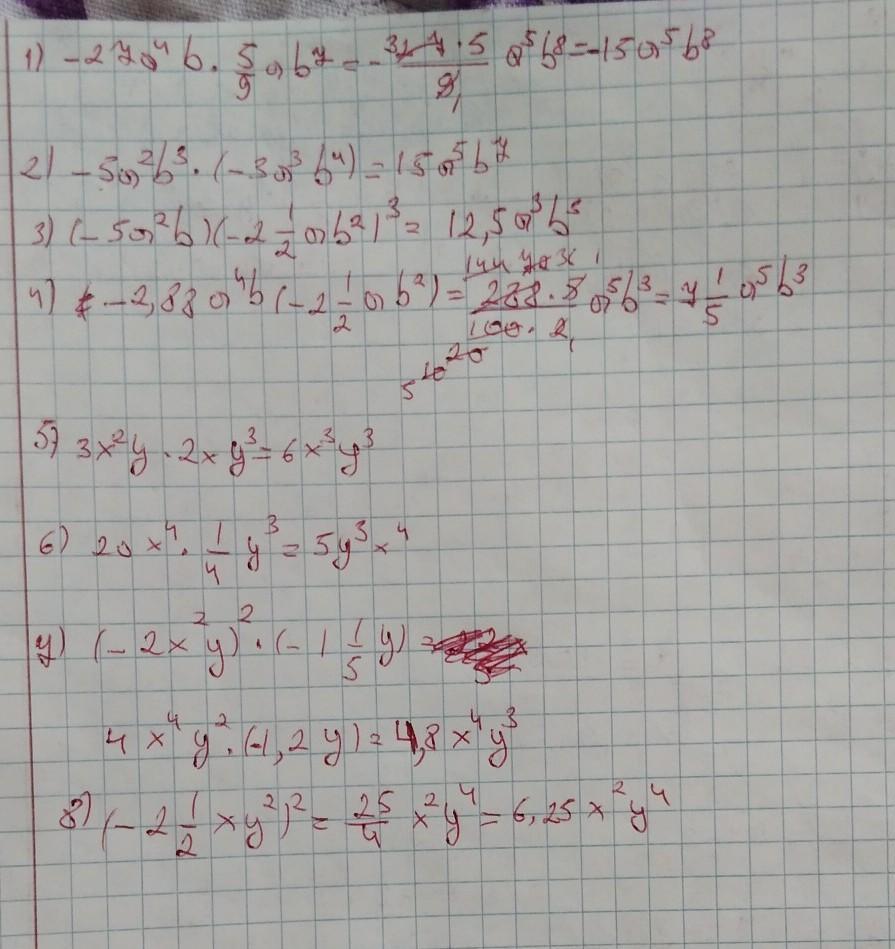 1) -27a⁴b · 5/9 ab⁷ = - ³27·5/9₁ a⁵b⁸ = -15a⁵b⁸
2) -5a²b³ · (-3a³b⁴) = 15a⁵b⁷
3) (-5a²b)(-2 1/2 ab²)³ = 12,5a³b³
4) -2,88a⁴b (-2 1/2 ab²) = 288·5/100·2₁ a⁵b³ = 7 1/5 a⁵b³
5 10 20
5) 3x²y · 2xy³ = 6x³y³
6) 20x⁴ · 1/4 y³ = 5y³x⁴
7) (-2x²y)² · (-1 1/5 y) =
4x⁴y² · (-1,2y) = 4,8x⁴y³
8) (-2 1/2 xy²)² = 25/4 x²y⁴ = 6,25x²y⁴